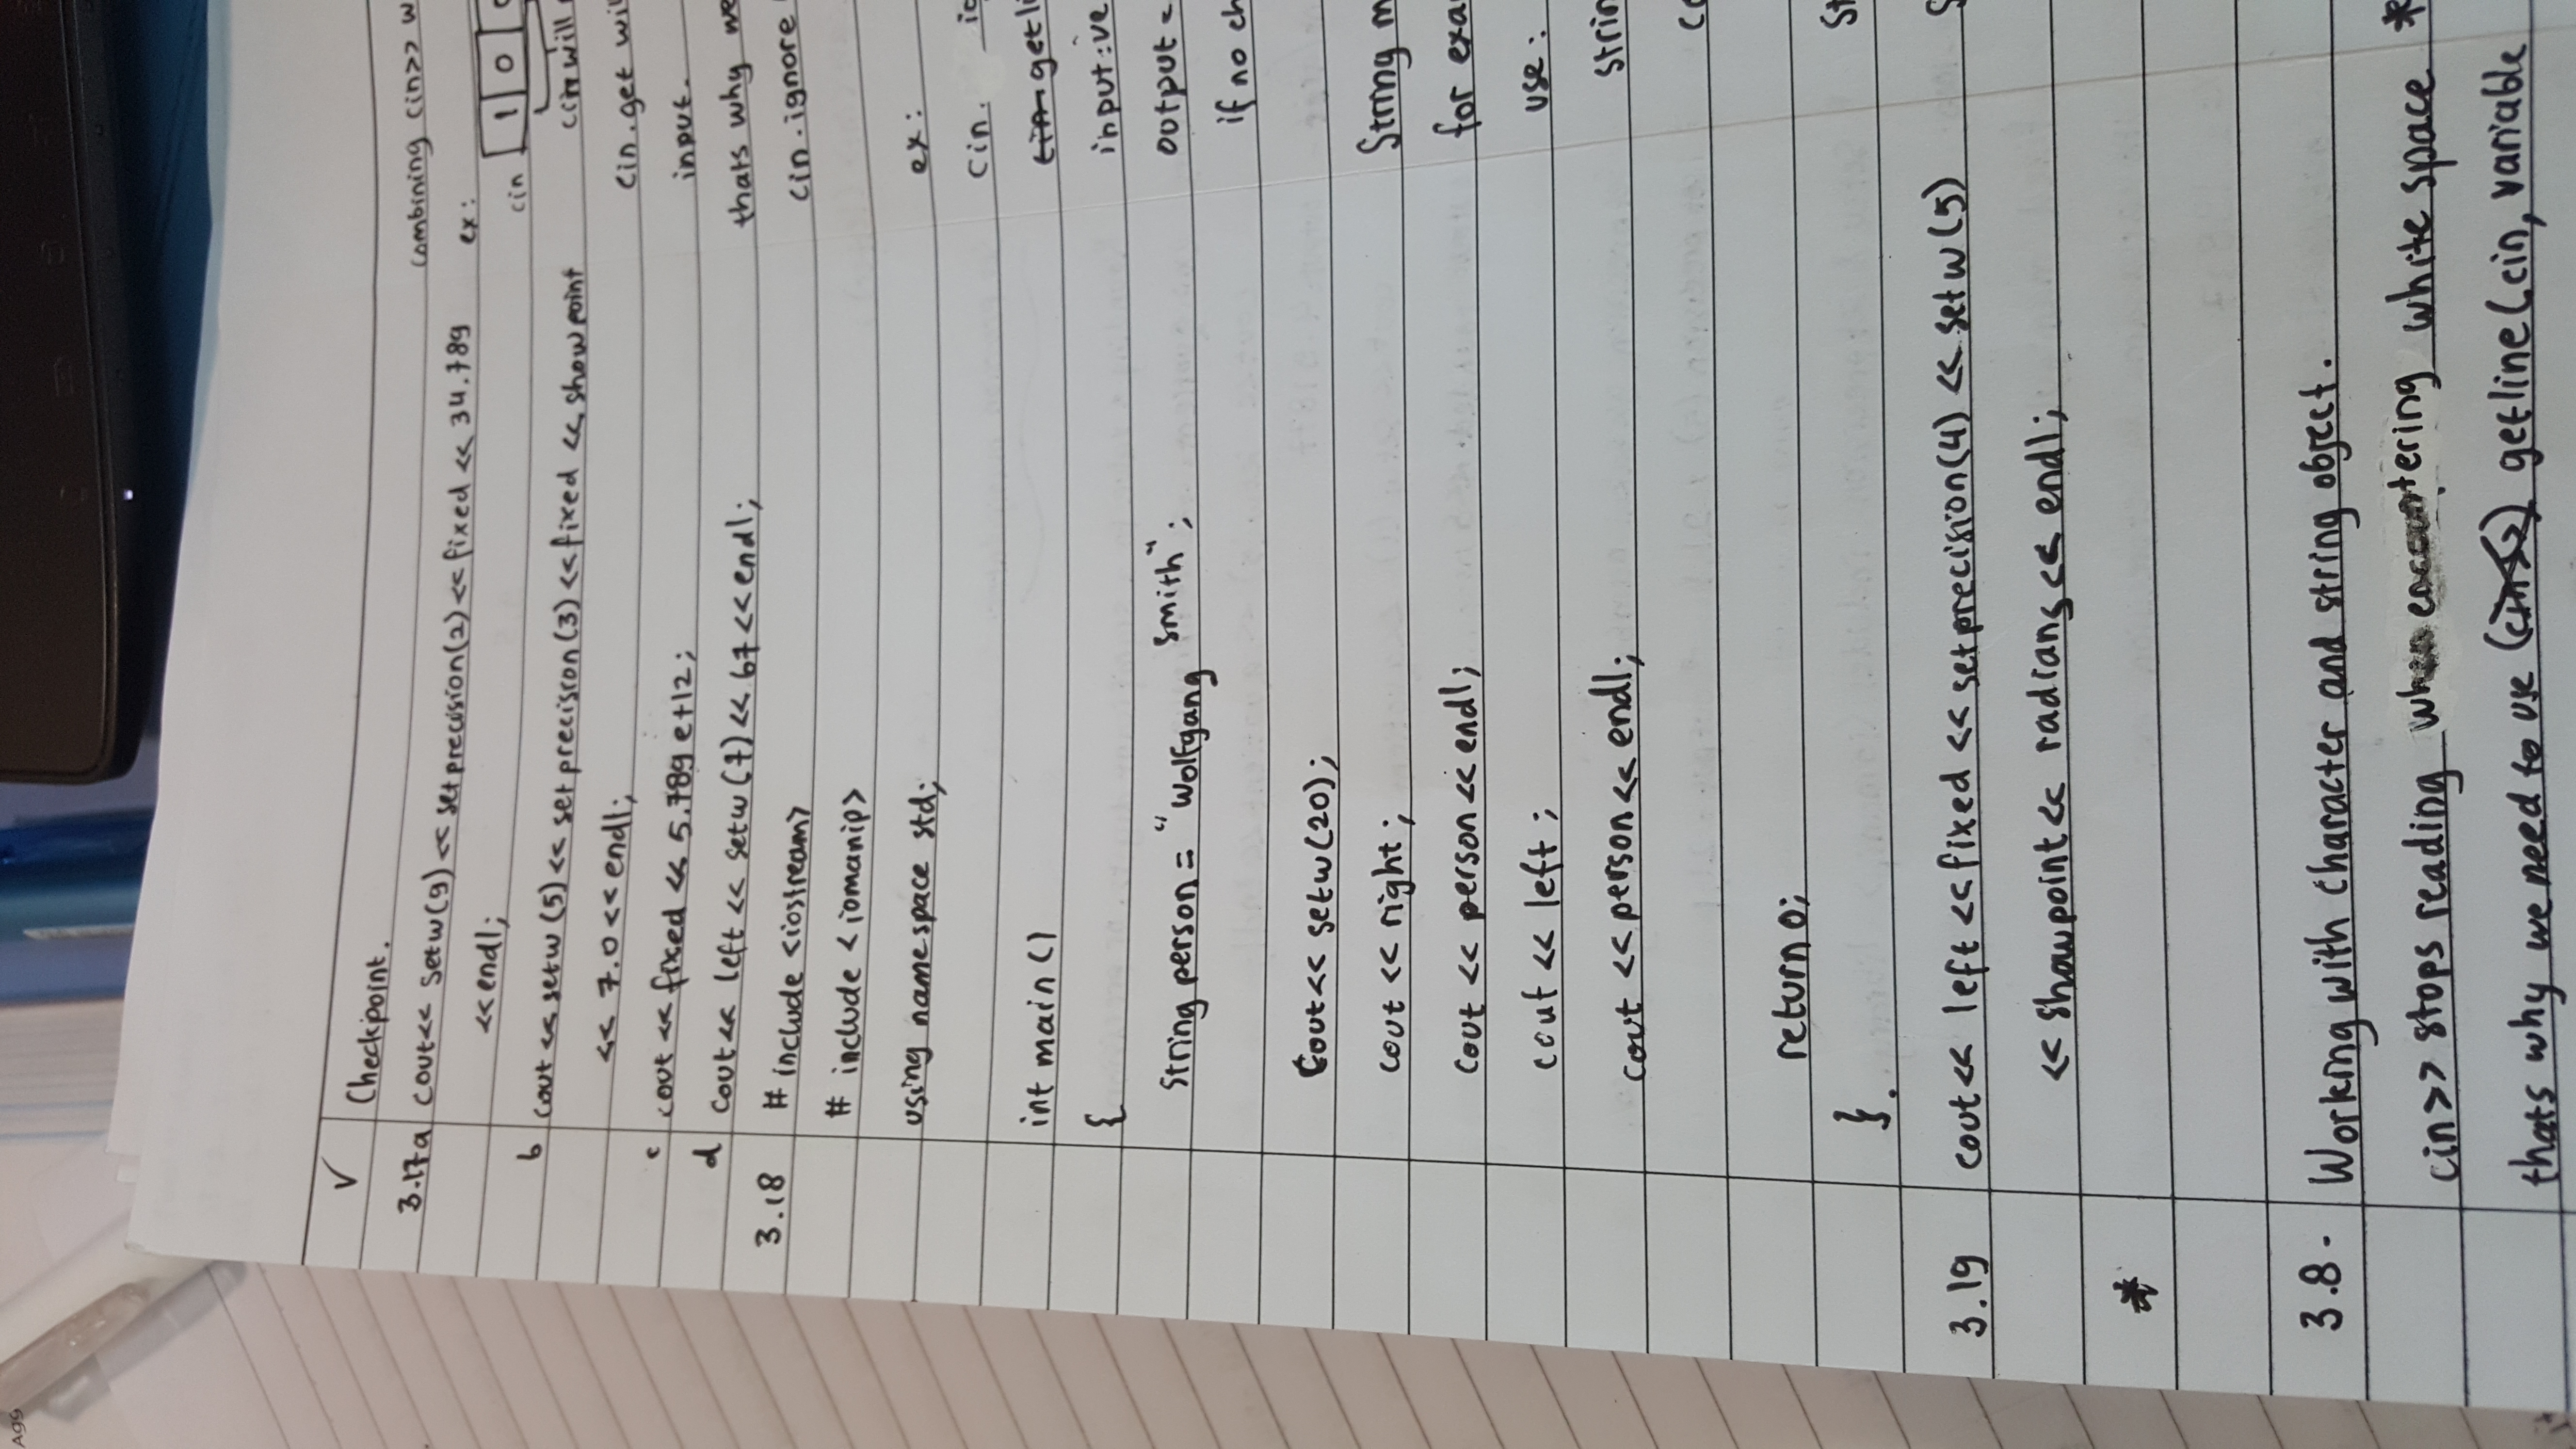 Agg
✓ Checkpoint.
3.17a cout<< setw(9) << setprecision(2) << fixed << 34.789
<<endl;
b cout << setw (5) << setprecision (3) << fixed << showpoint
<< 7.0 << endl;
c cout << fixed << 5.789 e+12;
d cout<< left << setw (7) << 67 <<endl;
3.18 # include <iostream>
# include <iomanip>
using namespace std;
int main ()
{
string person = "Wolfgang Smith";
cout<< setw(20);
cout << right ;
cout << person << endl;
cout << left ;
cout << person << endl;
return 0;
}.
3.19 cout<< left << fixed << setprecision(4) << setw (5)
<< showpoint << radians << endl;
*
3.8. Working with character and string object.
cin>> stops reading when encountering white space *
thats why we need to use getline (cin, variable
combining cin>> w
ex:
cin 1 0
will
cin.get wil
input.
thats why we
cin.ignore
ex:
cin. ig
getli
input: ve
output =
if no ch
String m
for exa
use:
strin
co
St
S